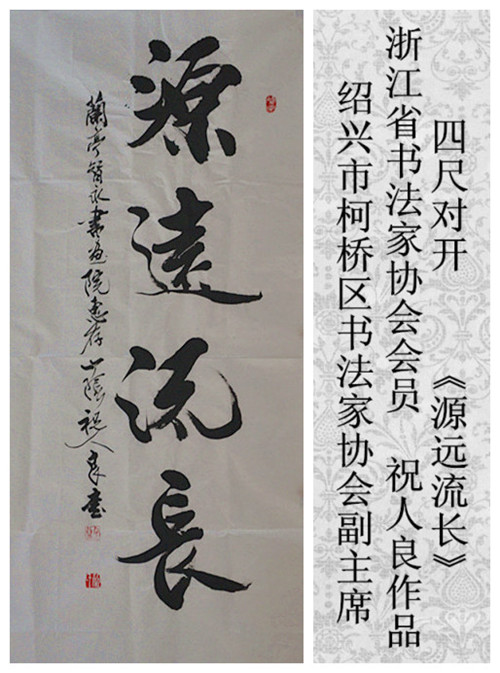 源遠流長
蘭亭智永書畫院惠存山陰祝人良書
四尺对开 《源远流长》
浙江省书法家协会会员 祝人良作品
绍兴市柯桥区书法家协会副主席